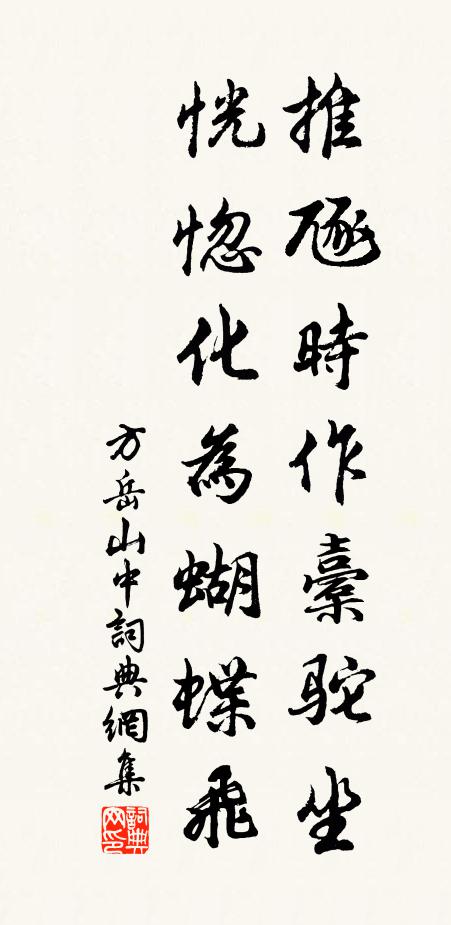 推豗時作橐駝坐
恍惚化為蝴蝶飛
方岳山中詞典網集
詞典
网印